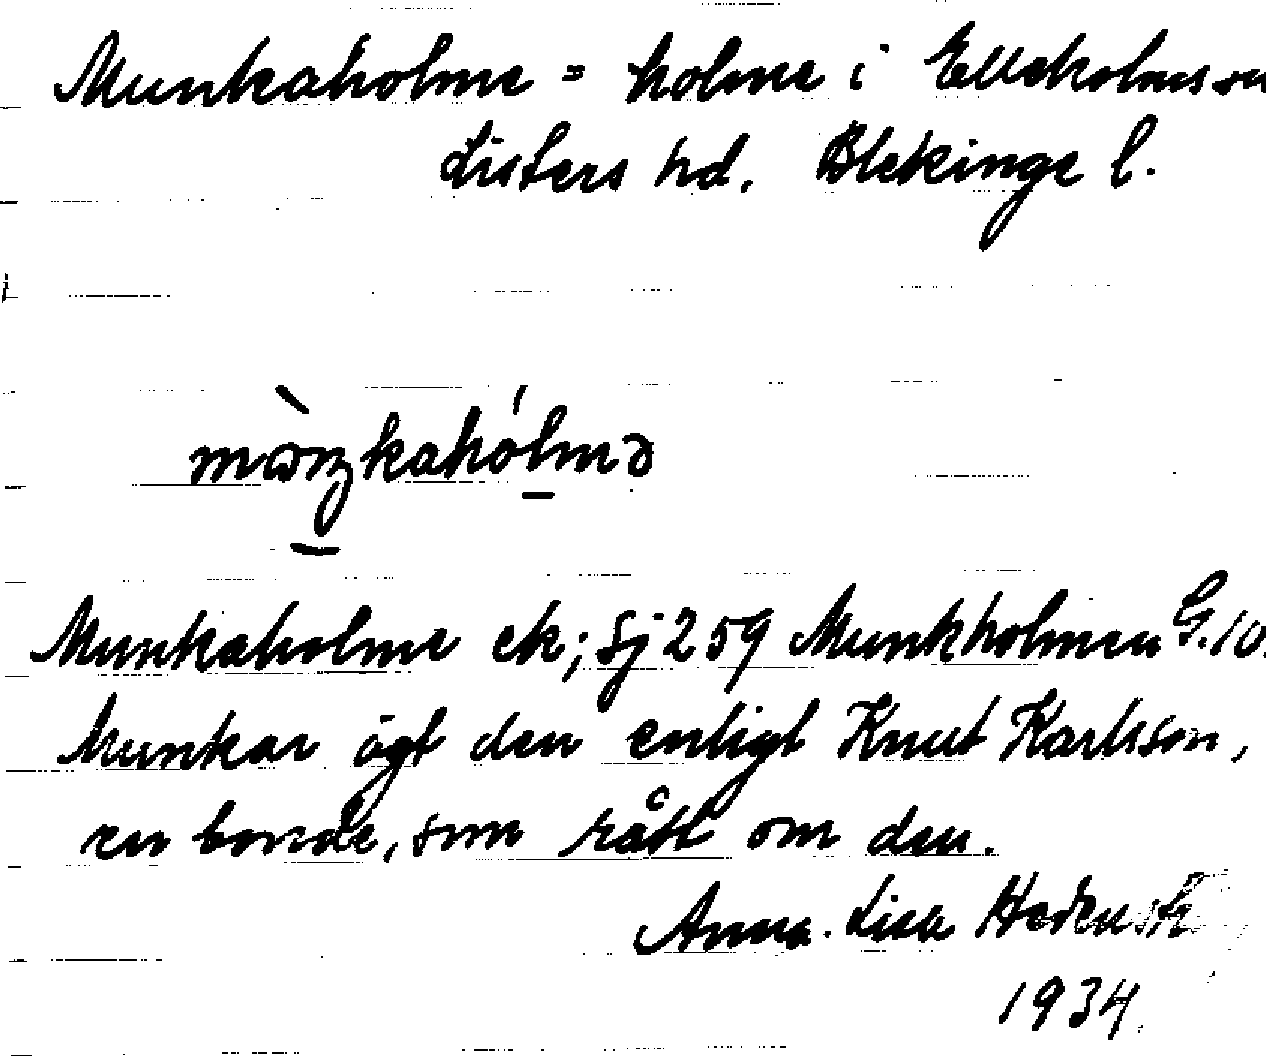 Munkaholme = holme i Ellekolms sn
Listers hd. Blekinge l.
mɷŋkahólmə
Munkaholme ek; Sj 259 Munkholmen G.10.
Munkar ägt den enligt Knut Karlsson,
en bonde, som rått om den.
Anna-Lisa
1934.